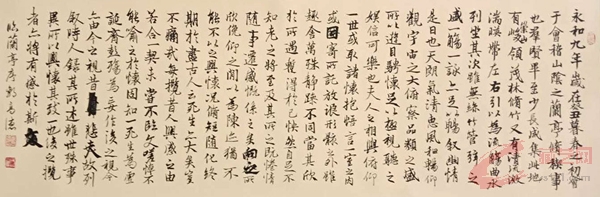 永和九年歲在癸丑暮春之初會
于會稽山陰之蘭亭脩稧事
也羣賢畢至少長咸集此地
有崇山峻領茂林脩竹又有清流激
湍暎帶左右引以為流觴曲水
列坐其次雖無絲竹管弦之
盛一觴一詠亦足以暢叙幽情
是日也天朗氣清惠風和暢仰
觀宇宙之大俯察品類之盛
所以遊目騁懷足以極視聽之
娛信可樂也夫人之相與俯仰
一世或取諸懷抱悟言一室之內
或因寄所託放浪形骸之外雖
趣舍萬殊靜躁不同當其欣
於所遇暫得於己怏然自足不
知老之將至及其所之既惓情
隨事遷感慨係之矣向之所
欣俛仰之閒以為陳迹猶不
能不以之興懷況脩短隨化終
期於盡古人云死生亦大矣豈
不痛哉每攬昔人興感之由
若合一契未嘗不臨文嗟悼不
能喻之於懷固知一死生為虛
誕齊彭殤為妄作後之視今
亦由今之視昔悲夫故列
敘時人錄其所述雖世殊事
異所以興懷其致一也後之攬
者亦將有感於斯文
臨蘭亭序